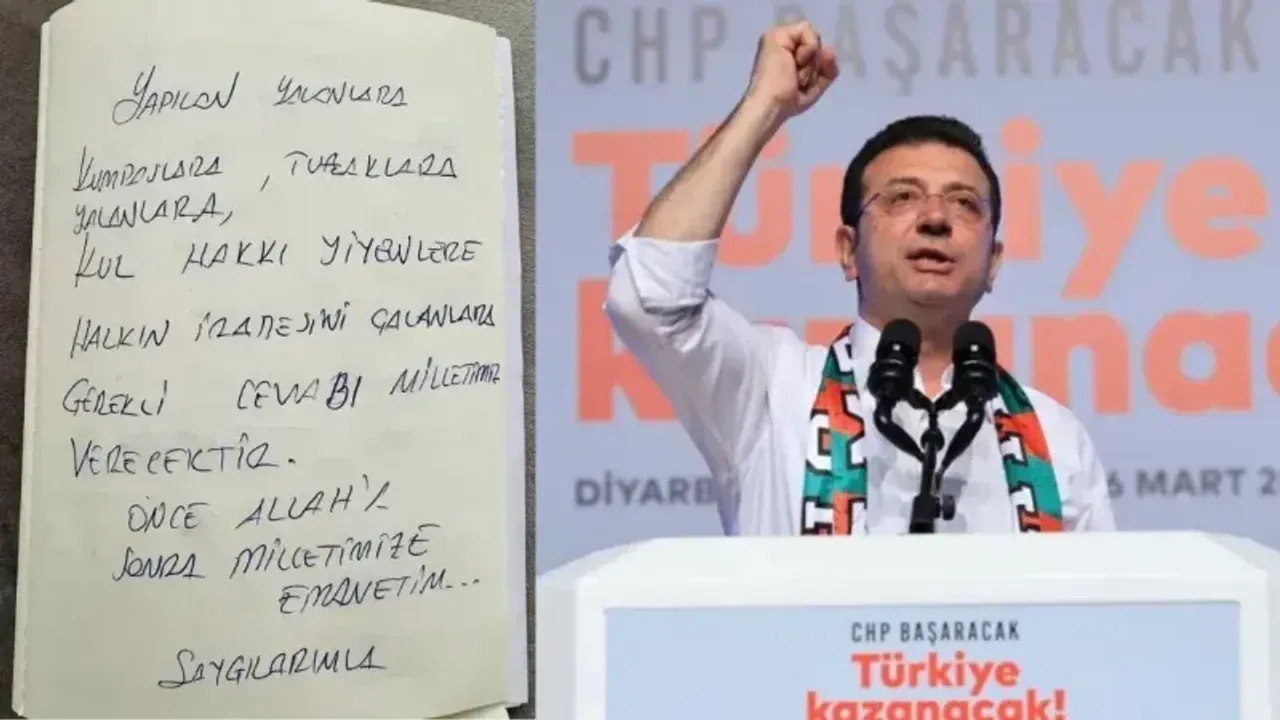 YAPILAN YALANLARA
KUMPASLARA, TUZAKLARA
YALANLARA,
KUL HAKKI YİYENLERE
HALKIN İRADESİNİ ÇALANLARA
GEREKLİ CEVABI MİLLETİMİZ
VERECEKTİR.
ÖNCE ALLAH'A
SONRA MİLLETİMİZE
EMANETİM...
SAYGILARIMLA
CHP BAŞARACAK
Türkiye
DİYARB 6 MART 2
CHP BAŞARACAK
Türkiye
kazanacak!